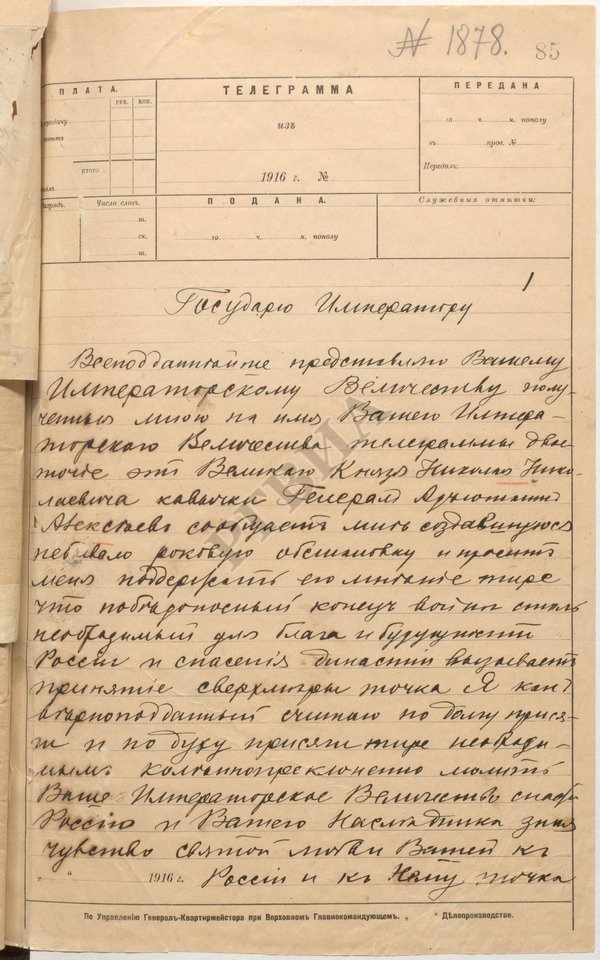 № 1878. 85
ПЛАТА. ТЕЛЕГРАММА ПЕРЕДАНА
РУБ. КОП.
изъ
го ч. м. пополу
въ пров. №
итого
Передалъ:
1916 г. №
Число словъ. ПОДАНА. Служебныя отмѣтки:
т.
ск. го ч. м. пополу
т.
1
Государю Императору
Всеподданнѣйше представляю Вашему
Императорскому Величеству полу-
ченныя мною на имя Вашего Импера-
торскаго Величества телеграммы двое
точіе отъ Великаго Князя Николая Нико-
лаевича кавычки Генералъ Адъютантъ
Алексѣевъ сообщаетъ мнѣ создавшуюся
небывало роковую обстановку и проситъ
меня поддержать его мнѣніе тире
что побѣдоносный конецъ войны столь
необходимый для блага и будущности
Россіи и спасенія династіи вызываетъ
принятіе сверхмѣры точка Я какъ
вѣрноподданный считаю по долгу прися-
ги и по духу присяги тире необходи-
мымъ колѣнопреклоненно молить
Ваше Императорское Величество спасти
Россію и Вашего Наслѣдника зная
чувство святой любви Вашей къ
1916 г. Россіи и къ Нему точка
По Управленію Генералъ-Квартирмейстера при Верховномъ Главнокомандующемъ. Дѣлопроизводство.
РГВИА